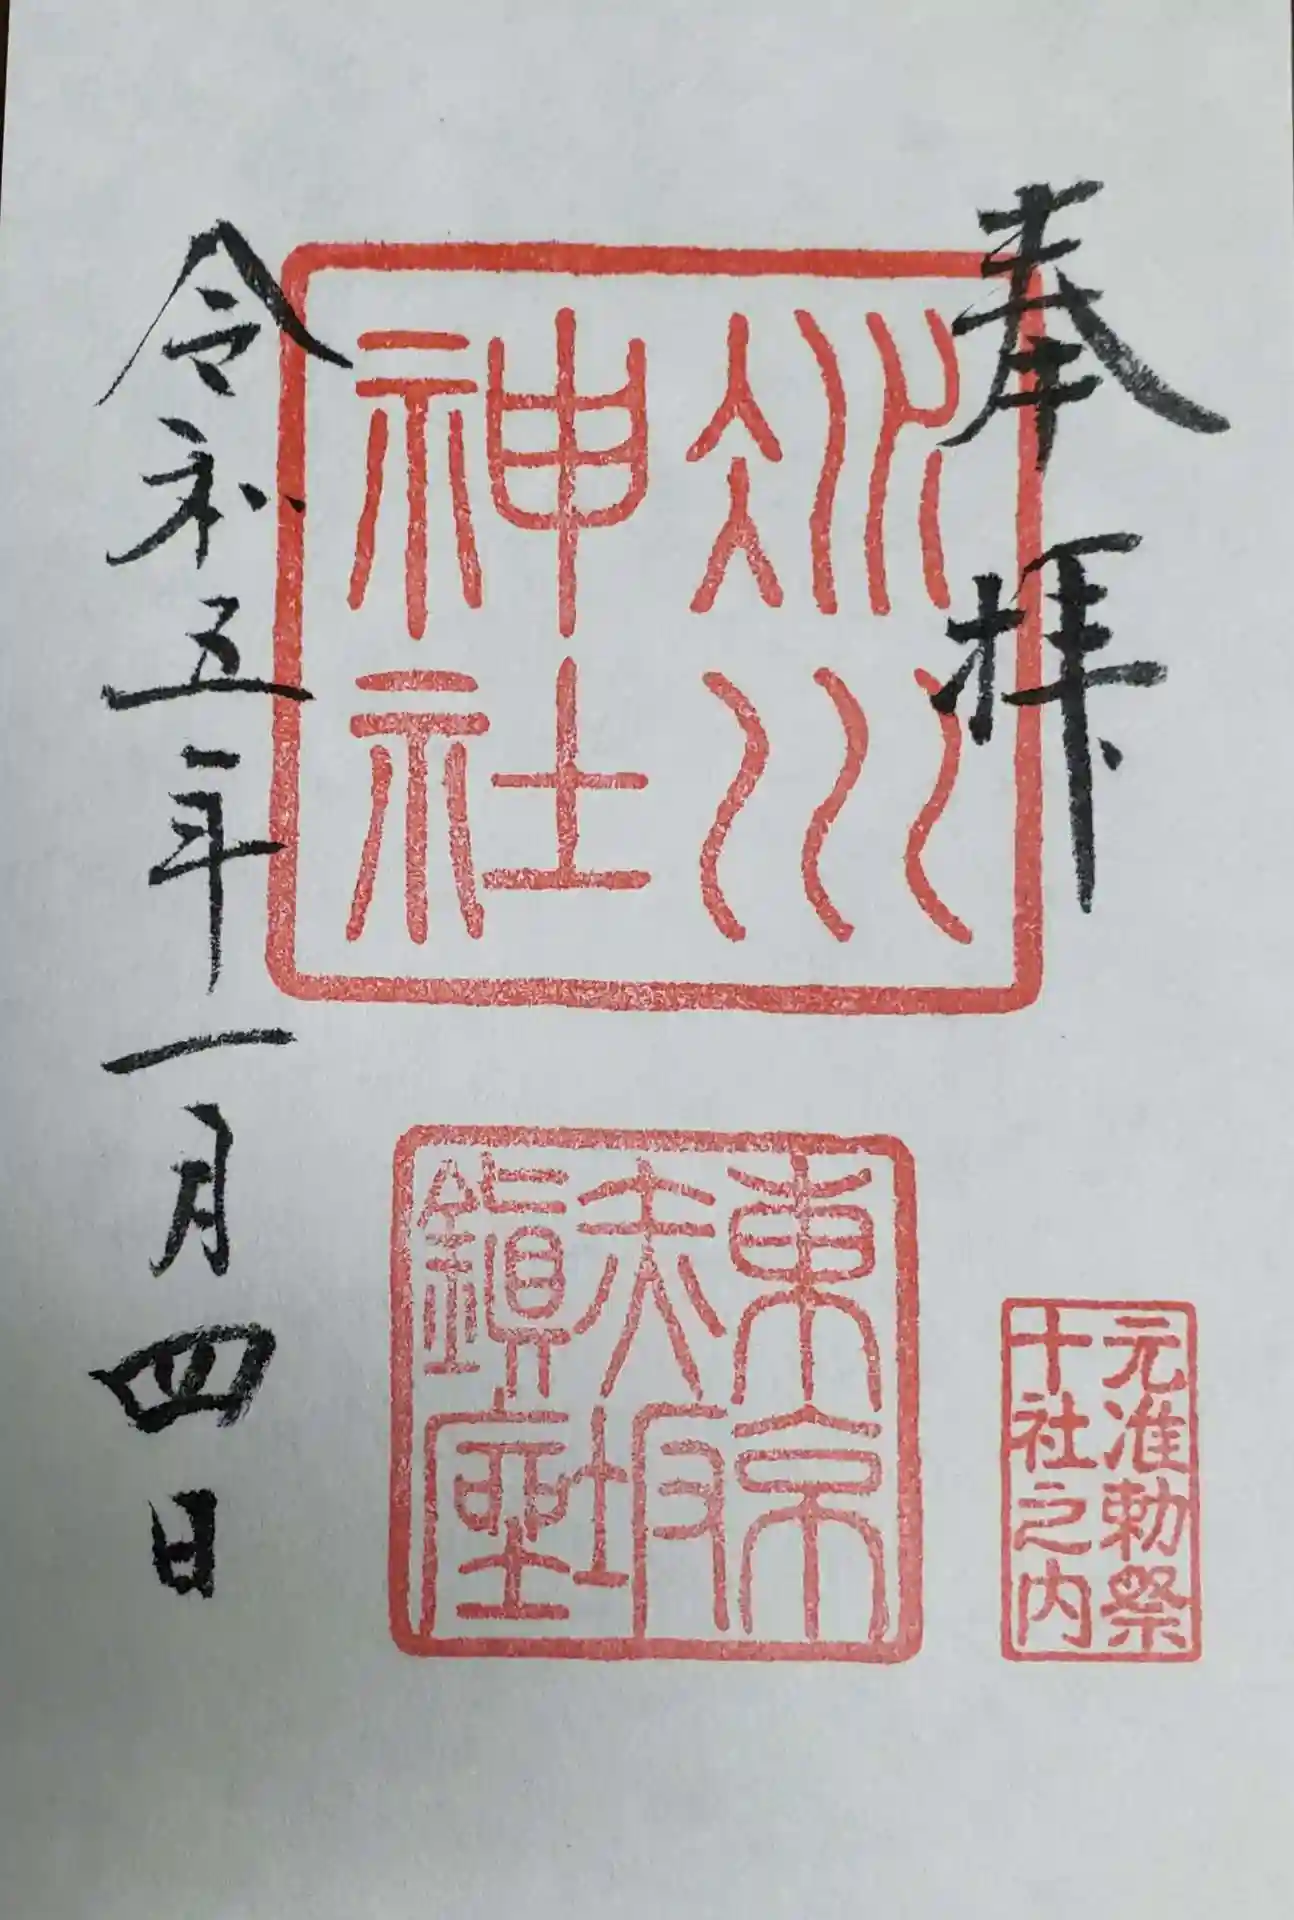 奉拝
氷川
神社
東京
赤坂
鎮座
元准勅祭
十社之内
令和五年一月四日